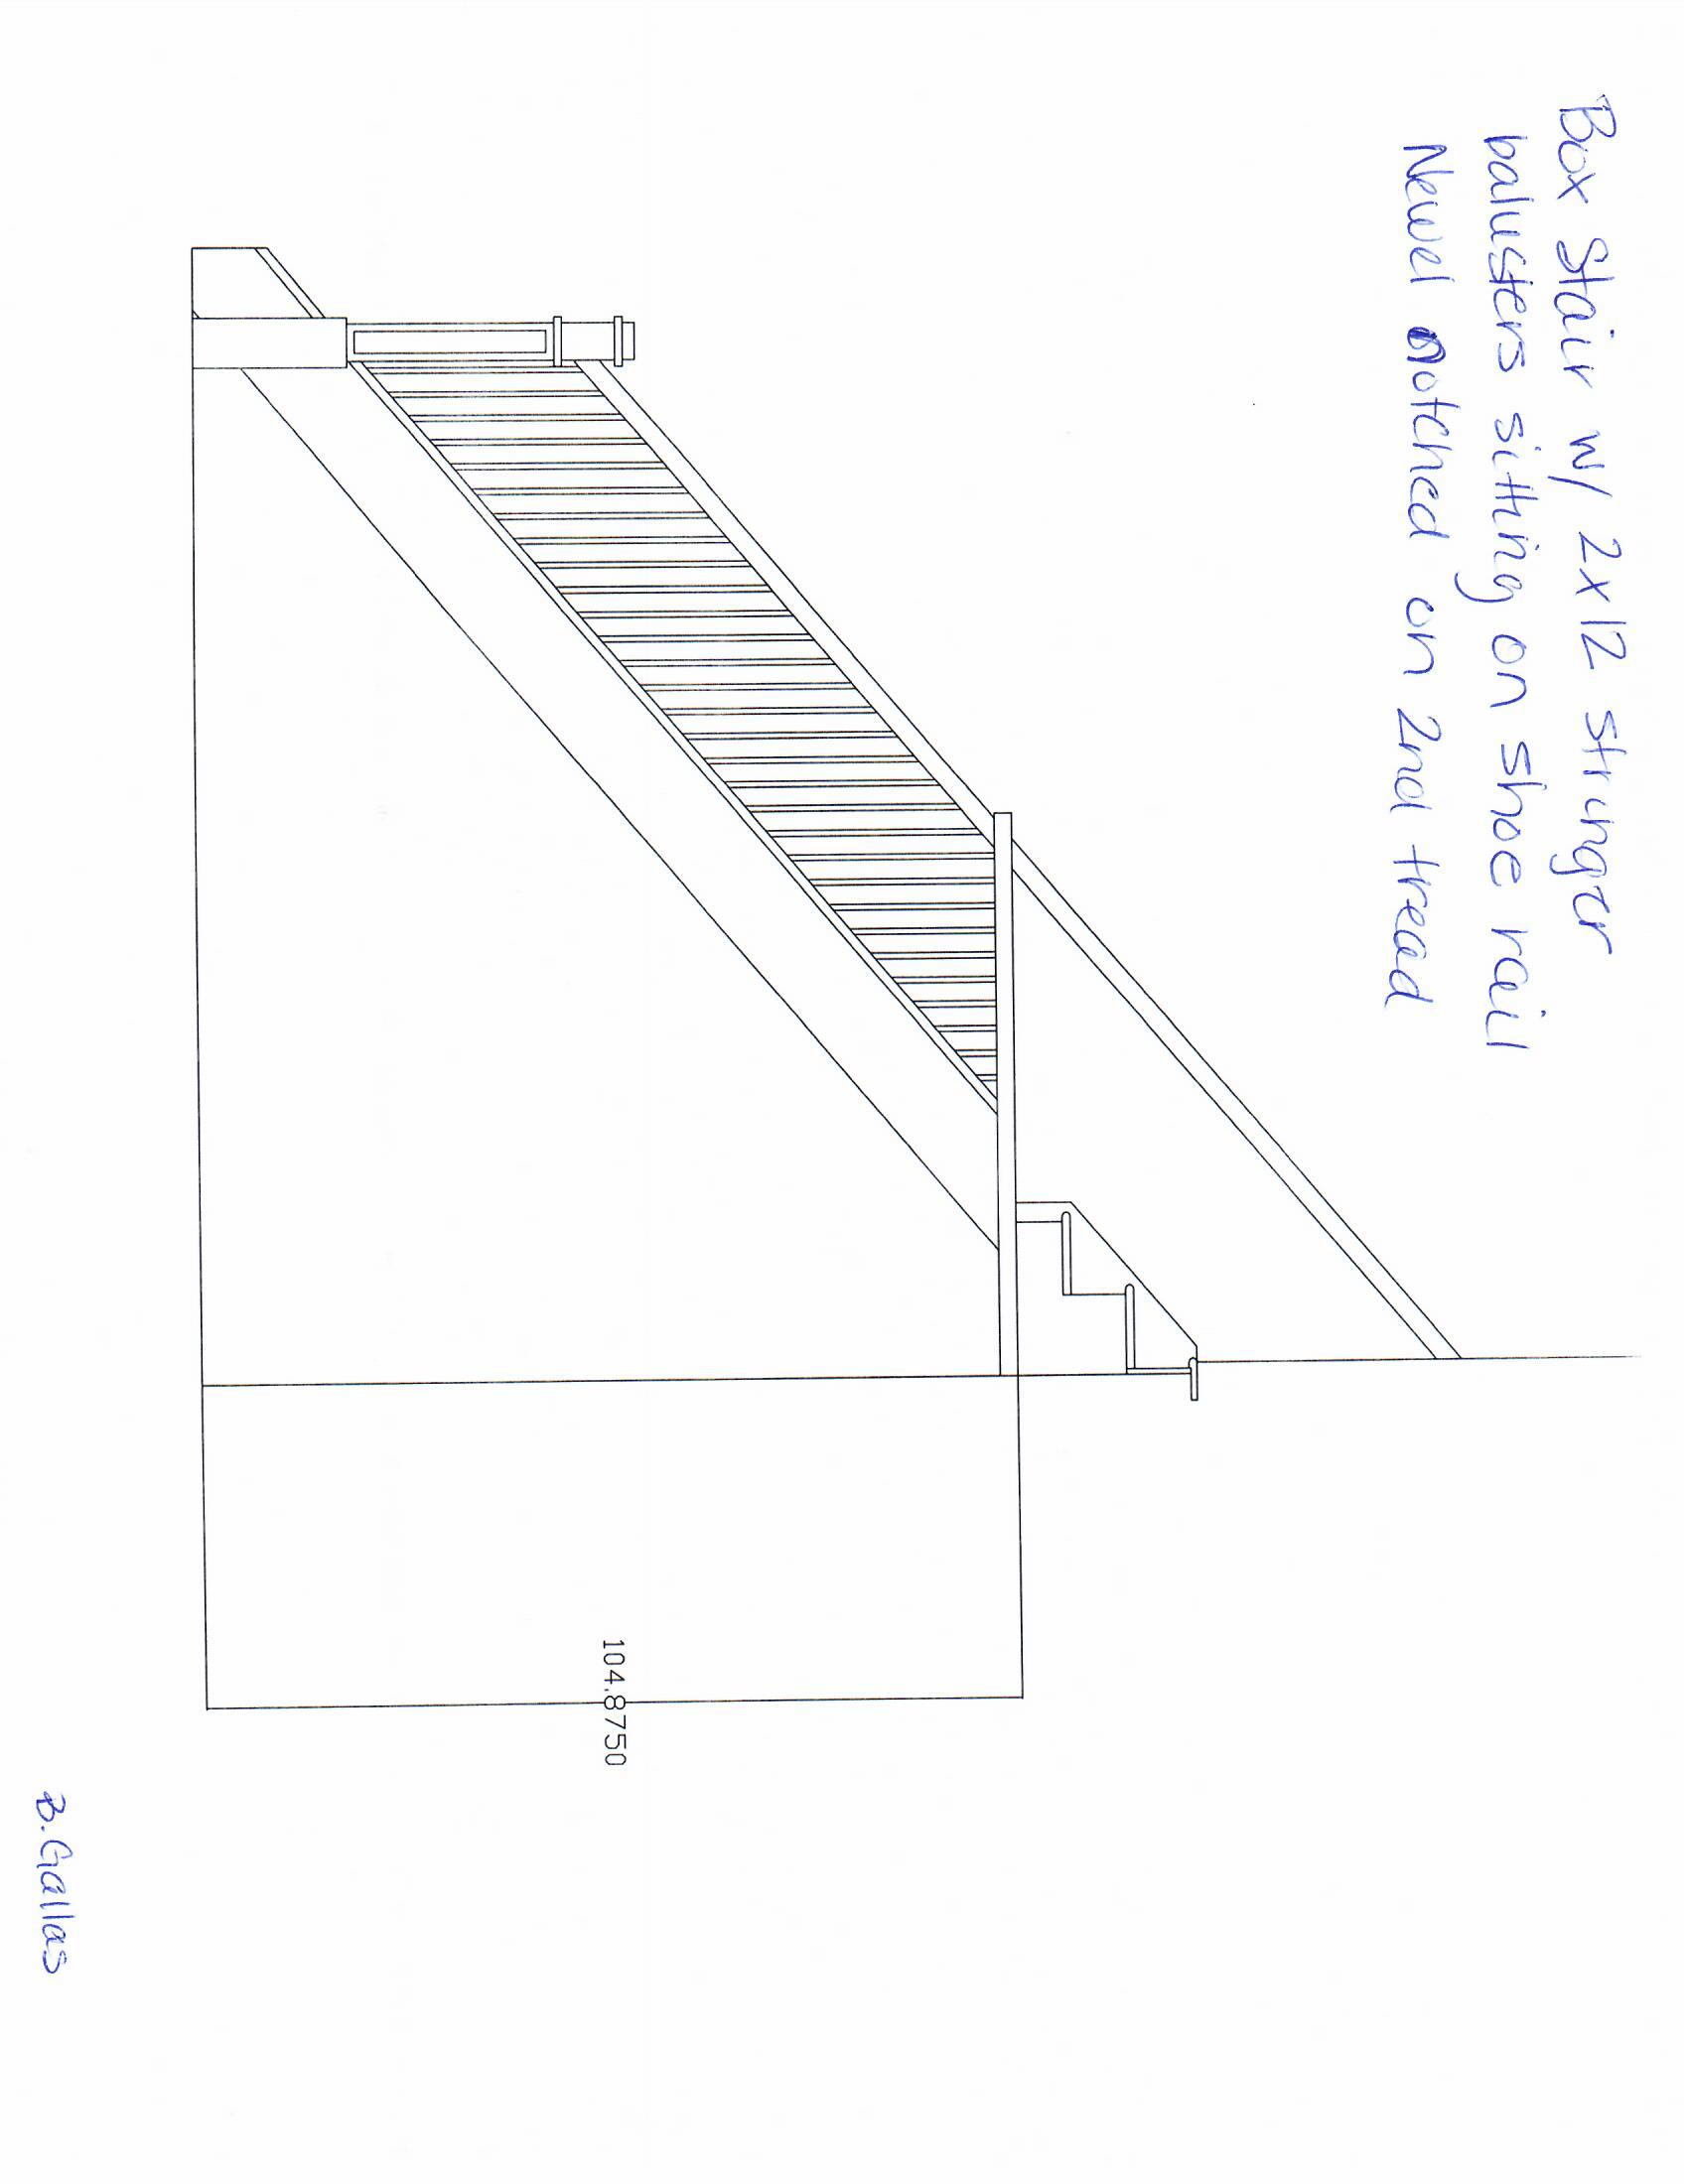 Box Stair w/ 2x12 stringer
balusters sitting on shoe rail
Newel notched on 2nd tread
104.8750
B.Gallas